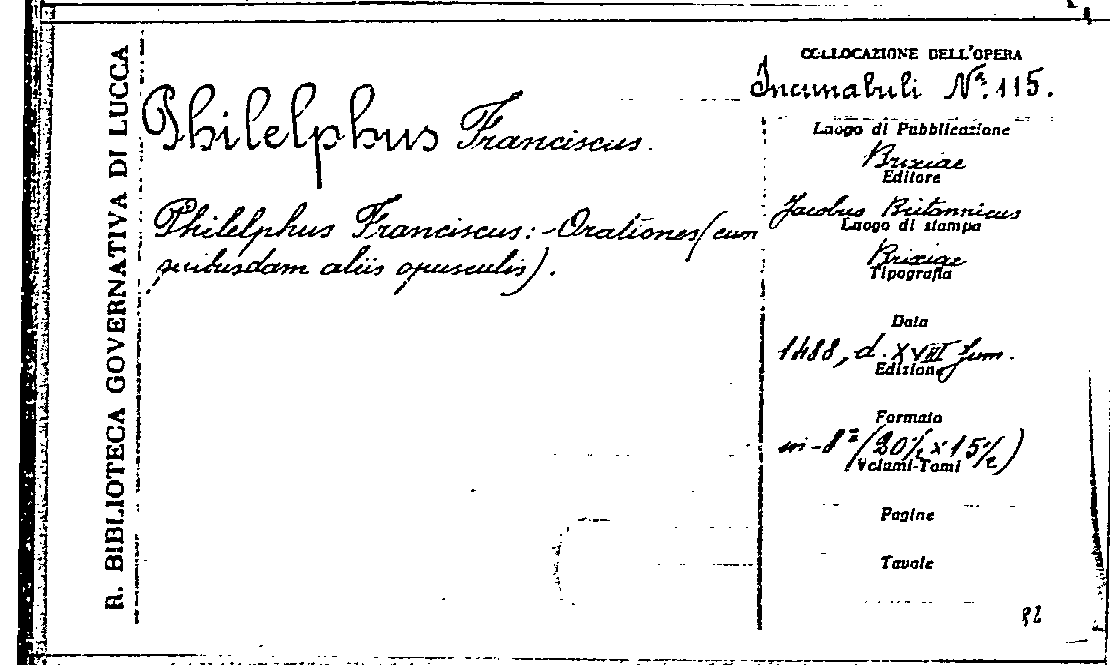 R. BIBLIOTECA GOVERNATIVA DI LUCCA
Philelphus Franciscus.
Philelphus Franciscus: - Orationes (cum
quibusdam aliis opusculis).
COLLOCAZIONE DELL'OPERA
Incunabuli Nº. 115.
Luogo di Pubblicazione
Brixiae
Editore
Jacobus Britannicus
Luogo di stampa
Brixiae
Tipografia
Data
1488, d. XVIII Jun.
Edizione
Formato
in-8º (20½ x 15½)
Volumi-Tomi
Pagine
Tavole